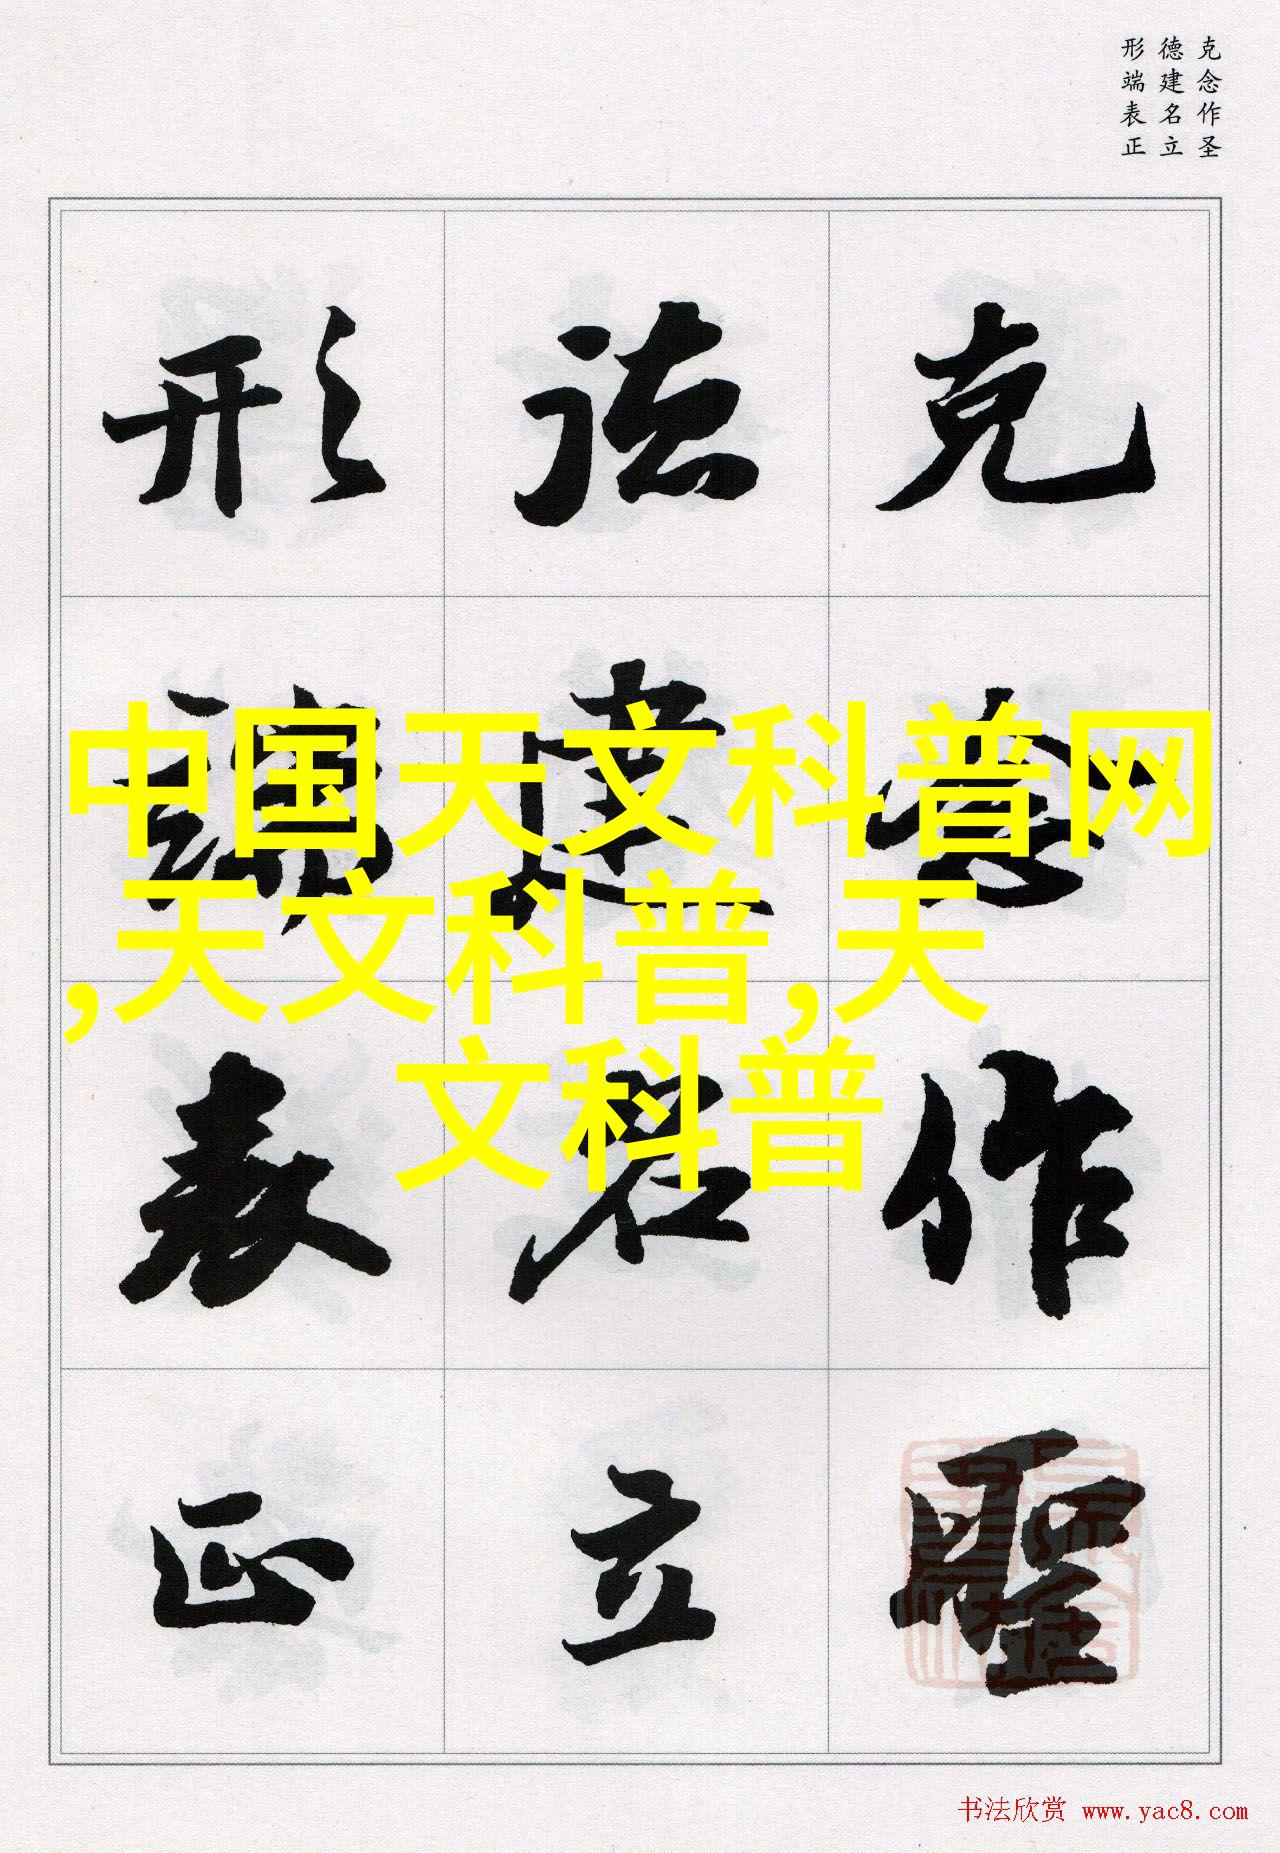 克念作圣
德建名立
形端表正
克念作聖
德建名立
形端表正
中国天文科普网
,天文科普,天
文科普
书法欣赏 www.yac8.com